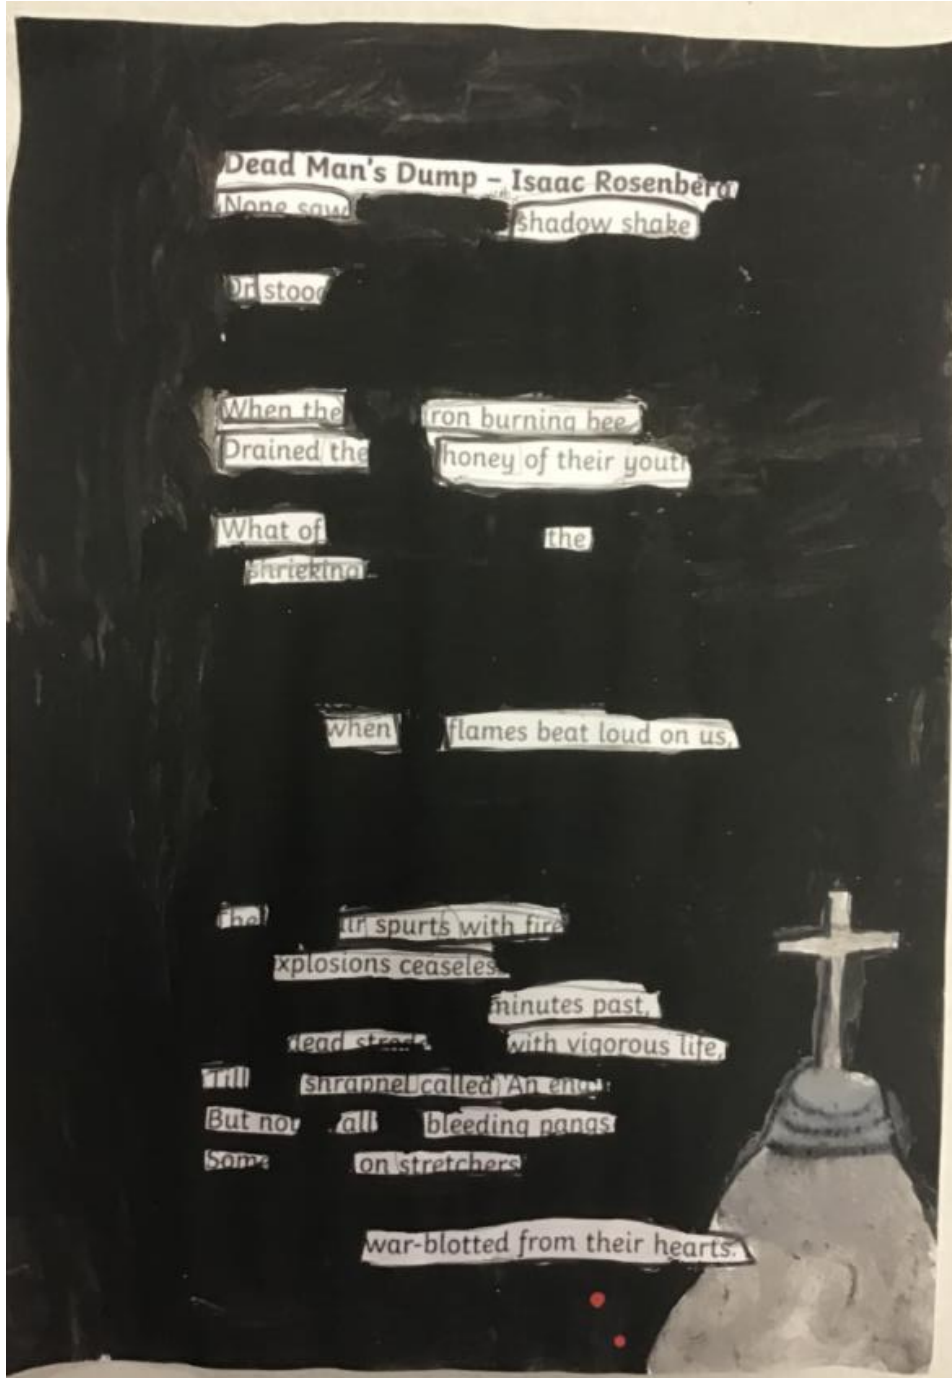 Dead Man's Dump – Isaac Rosenberg
None saw shadow shake
Or stood
When the iron burning bee
Drained the honey of their youth
What of the
shrieking
when flames beat loud on us,
The air spurts with fire
xplosions ceaseles
minutes past,
dead strode with vigorous life,
Till shrapnel called 'An end!'
But not all bleeding pangs
Some on stretchers
war-blotted from their hearts.